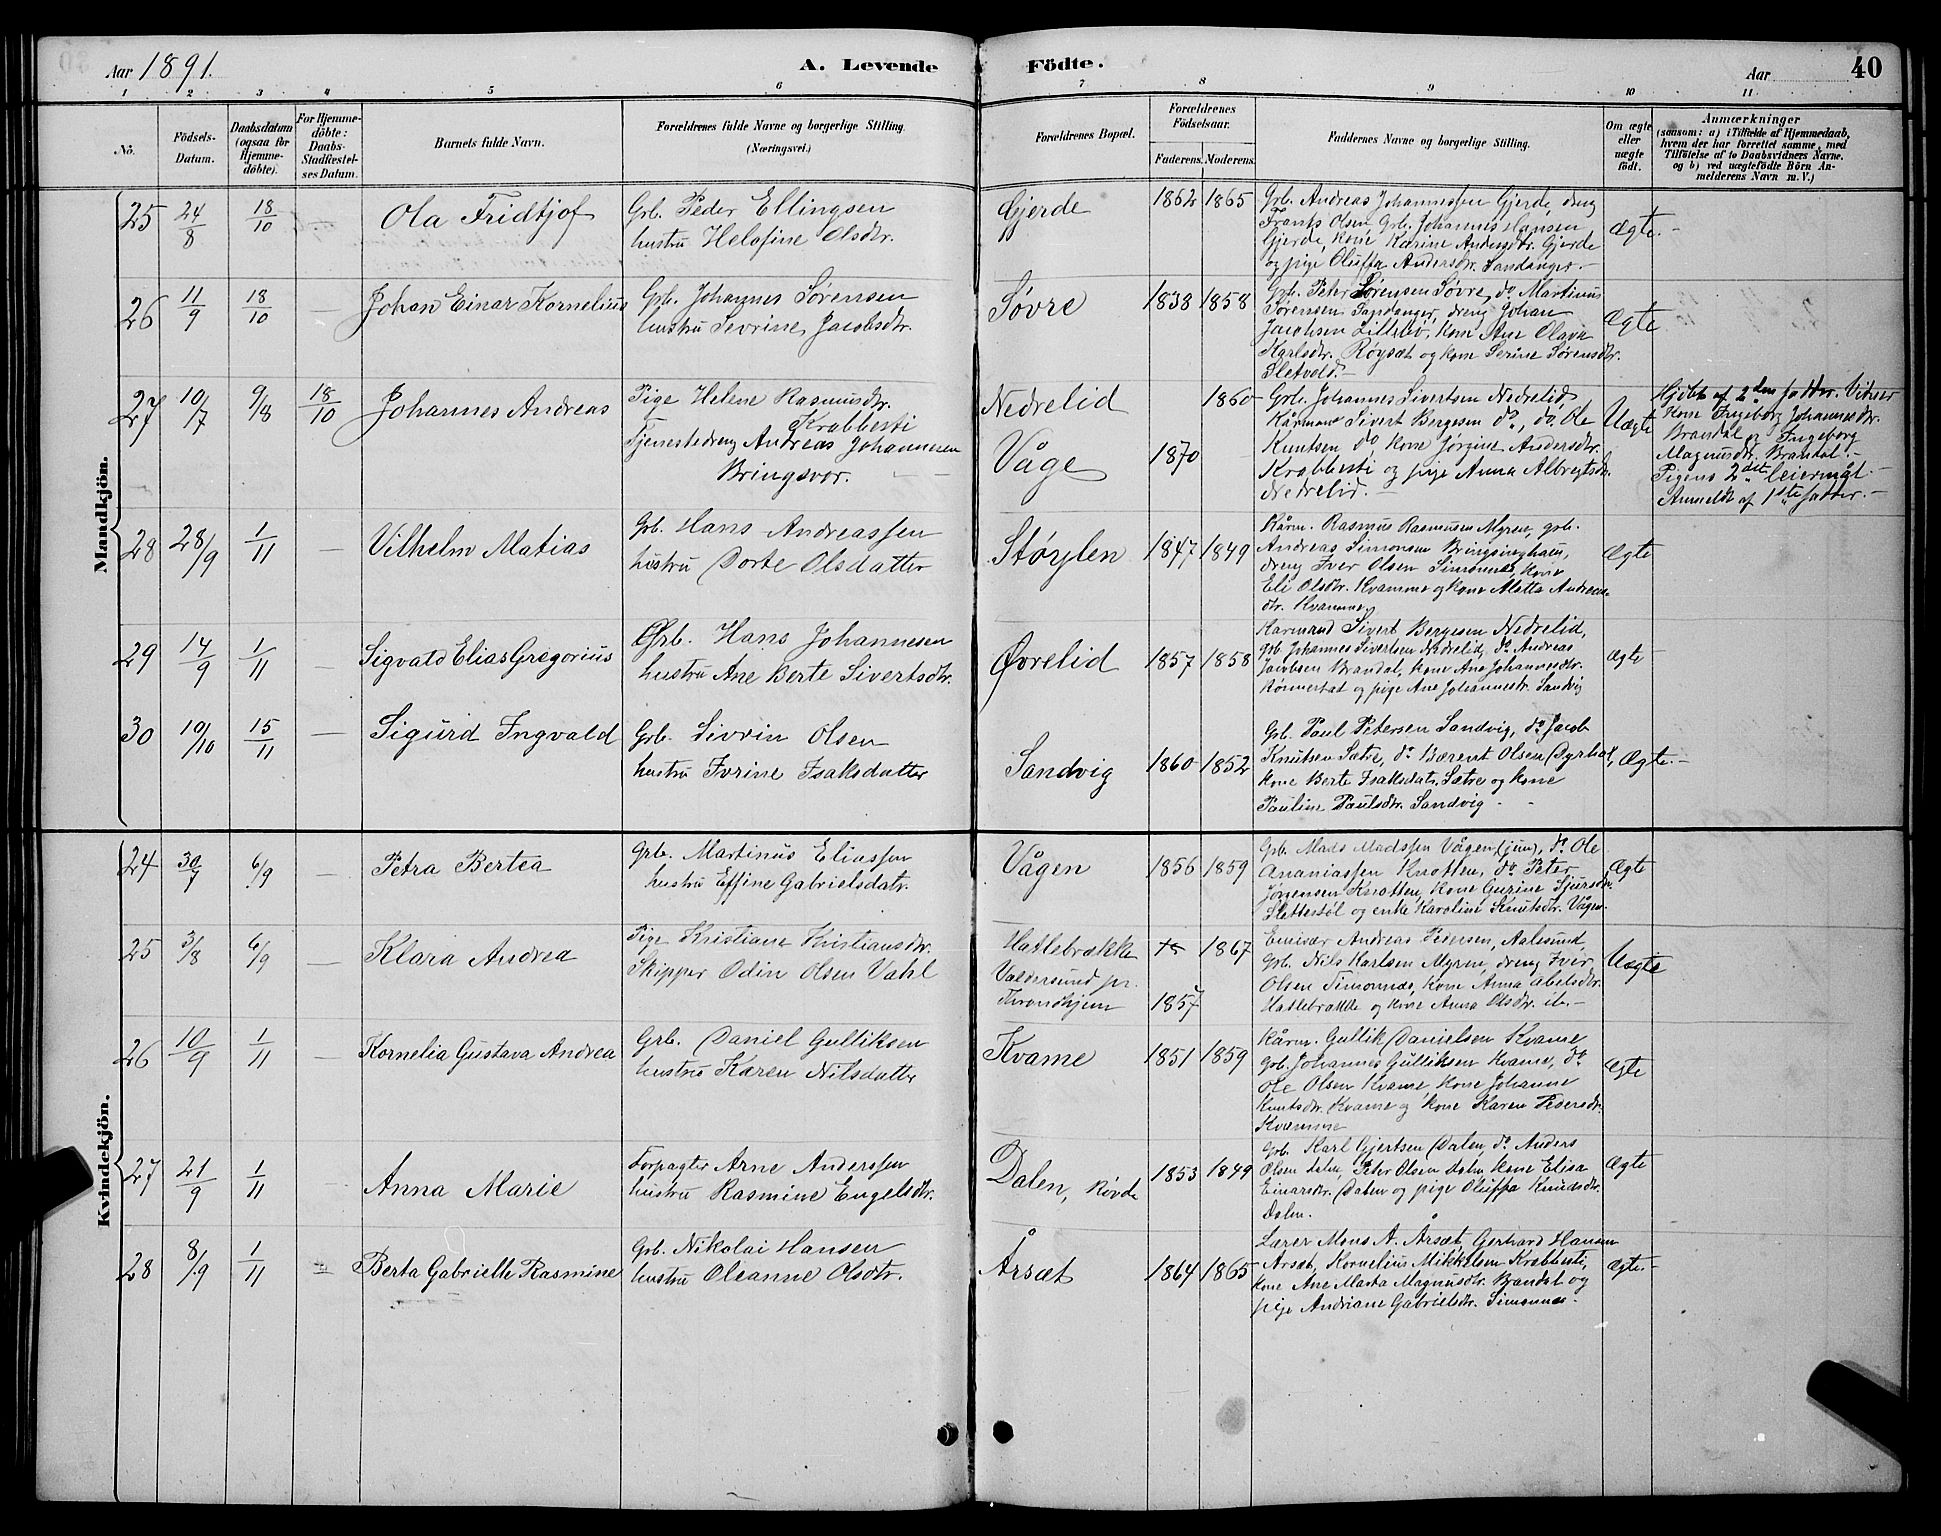 Aar 1891.
A. Levende Födte.
Aar
40
1 2 3 4 5 6 7 8 9 10 11
No.
Födsels-Datum.
Daabsdatum (ogsaa for Hjemmedöbte).
For Hjemmedöbte: Daabs-Stadfæstelses Datum.
Barnets fulde Navn.
Forældrenes fulde Navne og borgerlige Stilling. (Næringsvei.)
Forældrenes Bopæl.
Forældrenes Födselsaar.
Faderens. Moderens.
Faddernes Navne og borgerlige Stilling.
Om ægte eller uægte födt.
Anmærkninger
(saasom: a) i Tilfælde af Hjemmedaab,
hvem der har forrettet samme, med
Tilföielse af to Daabsvidners Navne,
og b) ved uægtefödte Börn An-
melderens Navn m. V.)
Mandkjön.
25 24/8 18/10 — Ola Fridtjof
Grb. Peder Ellingsen
hustru Helofine Olsdtr.
Gjerde 1862 1865
Grb. Andreas Johannessen Gjerde, dreng
Frants Olsen, Grb. Johannes Hansen
Gjerde, kone Karine Andersdtr. Gjerde
og pige Oluffa Andersdtr. Sandanger. —
Ægte. —
26 11/9 18/10 — Johan Einar Kornelius
Grb. Johannes Sørensen
hustru Sevrine Jacobsdtr.
Søvre 1838 1858
Grb. Peter Sørensen Søvre, do Martinus
Sørensen Sandanger, dreng Johan
Jacobsen Lillebø, kone Ane Olava
Karlsdtr. Røysæt og kone Serine Sørensdtr.
Sletvold.
Ægte
27 10/7 9/8 18/10 Johannes Andreas
Pige Helene Rasmusdtr.
Krabbesti
Tjenestedreng Andreas Johannesen
Bringsvor. — —
Nedrelid 1860
Våge 1870 —
Grb. Johannes Sivertsen Nedrelid,
Kårmand Sivert Bergesen do, do. Ole
Knutsen do, kone Jørgine Andersdtr.
Krabbesti og pige Anna Albregtsdtr.
Nedrelid. —
Uægte
Hjdbt af 2den fadder. Vidner
Kone Ingeborg Johannesdtr.
Brandal og Ingeborg
Magnusdtr. Brandal. —
Pigens 2det leiermål. —
Anmeldt af 1ste fadder. —
28 28/9 1/11 — Vilhelm Matias
Grb. Hans Andreassen
hustru Dorte Olsdatter
Støylen 1847 1849
Kårm. Rasmus Rasmusen Myren, grb.
Andreas Simonsen Bringsinghaug,
dreng Iver Olsen Simonnes, kone
Eli Olsdtr. Kvamme og kone Matta Andreas-
dtr. Kvamme
Ægte
29 14/9 1/11 — Sigvald Elias Gregorius
Grb. Hans Johannesen
hustru Ane Berte Sivertsdtr.
Øvrelid 1857 1858
Karmand Sivert Bergesen Nedrelid,
Grb Johannes Sivertsen Nedrelid, do Andreas
Jacobsen Brandal, kone Ane Johannesdtr.
Rønnestat og pige Ane Johannesdtr. Sandvig
Ægte —
30 10/10 15/11 — Sigurd Ingvald
Grb. Sivrin Olsen
hustru Ivrine Isaksdatter
Sandvig 1860 1852
Grb. Paul Petersen Sandvig, do Jacob
Knutsen Sætre, do Bærent Olsen Dyrhol,
kone Berte Isaksdatr. Sætre og kone
Pauline Paulsdtr. Sandvig. —
Ægte. —
Kvindekjön.
24 30/7 6/9 — Petra Bertea
Grb. Martinus Eliassen
hustru Effine Gabrielsdatr.
Vågen 1856 1859
Grb. Mads Madssen Vågen (jun), do Ole
Ananiassen Knotten, do Peter
Jørgensen Knotten, kone Gurine Sjursdtr.
Slettestøl og enke Karoline Knutsdtr. Vågen.
Ægte
25 3/8 6/9 — Klara Andrea
Pige Kristiane Kristiansdtr.
Skipper Odin Olsen Vahl
Hatlebrække 1867
Valdersund pr. Throndhjem 1857
Emisær Andreas Pedersen, Aalesund,
Grb. Nils Karlsen Myren, dreng Iver
Olsen Simonnæs, kone Anna Abelsdtr.
Hatlebrække og kone Anna Olsdtr. ib. —
Uægte
26 10/9 1/11 — Kornelia Gustava Andrea
Grb. Daniel Gulliksen
hustru Karen Nilsdatter
Kvame 1851 1859
Kårm. Gullik Danielsen Kvame
Grb. Johannes Gulliksen Kvame, do
Ole Olsen Kvame kone Johanne
Knutsdtr. Kvame og kone Karen Pedersdtr.
Kvamme
Ægte
27 21/9 1/11 — Anna Marie
Forpagter Arne Anderssen
hustru Rasmine Engelsdtr.
Dalen, Røvde 1853 1849
Grb. Karl Gjertsen Dalen, do Anders
Olsen Dalen, Peter Olsen Dalen kone Elisa
Einarsdtr. Dalen og pige Oluffa Knudsdtr.
Dalen.
Ægte
28 8/9 1/11 — Berta Gabrielle Rasmine
Grb. Nikolai Hansen
hustru Oleanne Olsdtr.
Årsæt 1864 1865
Lærer Mons A. Årsæt, Gerhard Hansen
Årsæt, Kornelius Mikkelsen Krabbesti,
kone Ane Marta Magnusdtr. Brandal og
pige Andriane Gabrielsdtr. Simonnes.
Ægte. —